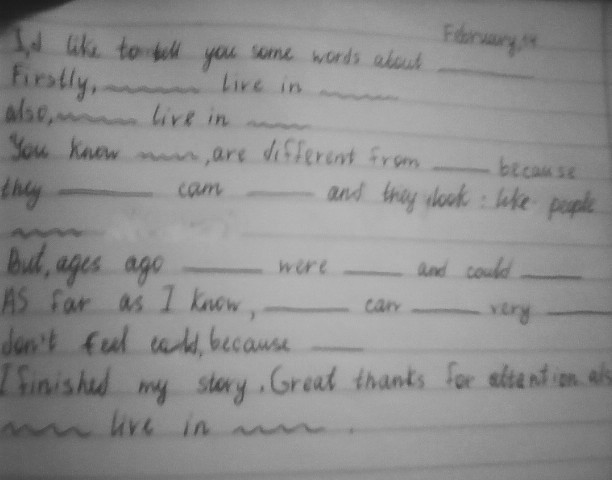 February, 14
I,d like to tell you some words about ________
Firstly, ________ live in ________
also, ________ live in ________
You know ________, are different from ________ because
they ________ cam ________ and they look : like people
________
But, ages ago ________ were ________ and could ________
AS far as I know, ________ can ________ very ________
don't feel could, because ________
I finished my story. Great thanks for attention als
________ live in ________ .